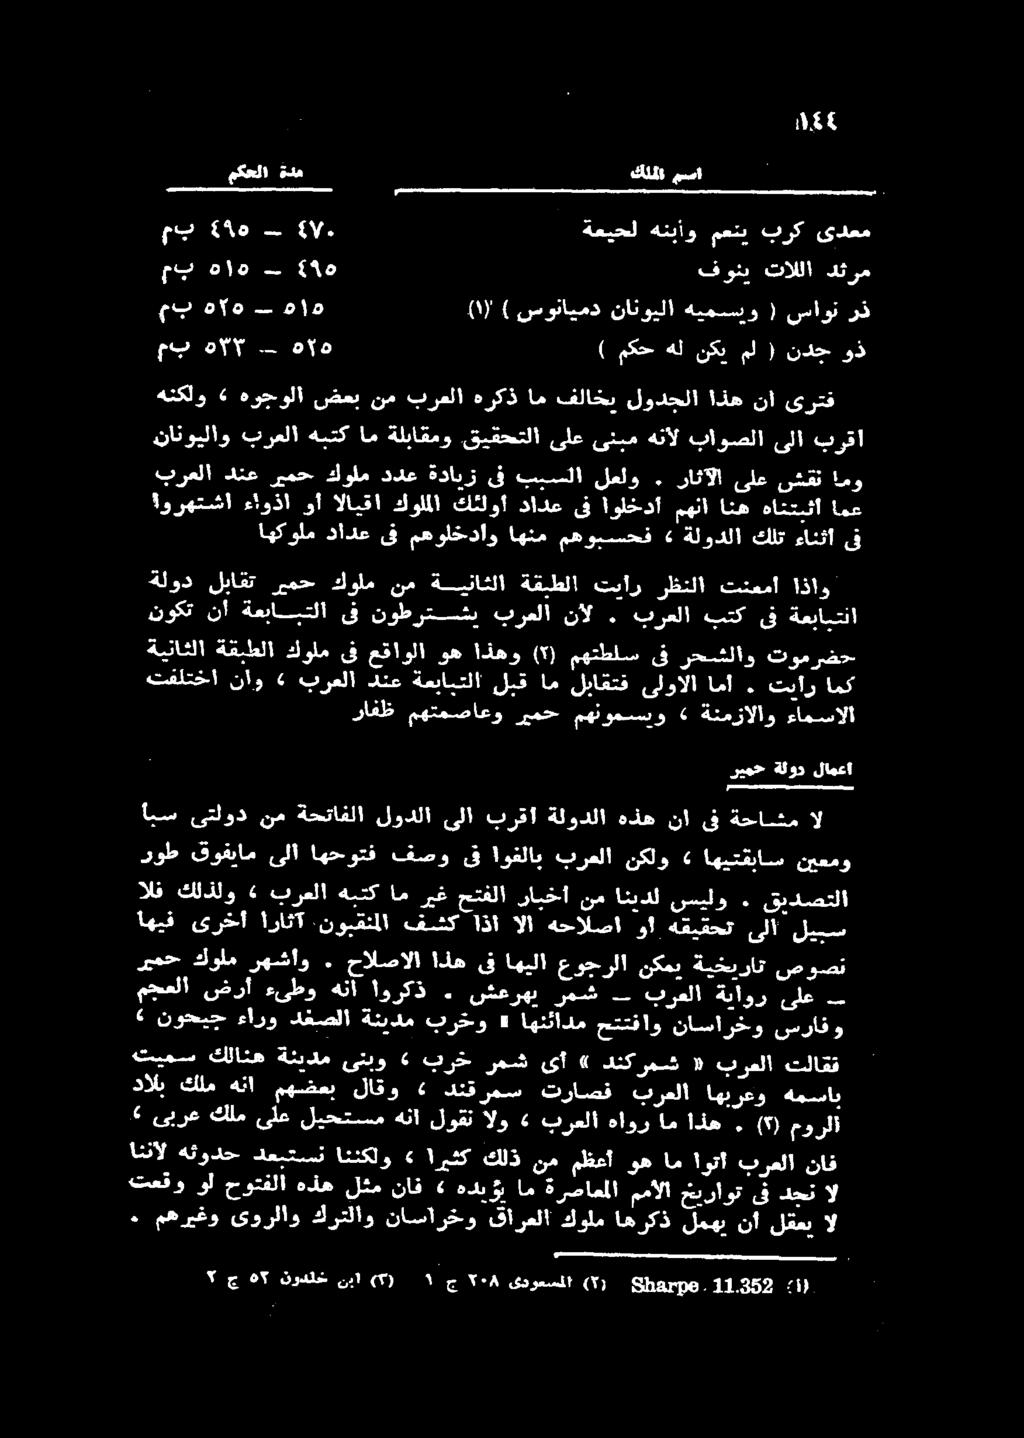 ١٤٤
اسم الملك    مدة الحكم
معدى كرب ينعم وأبنه لحيعة    ٤٧٠ — ٤٩٥ ب م
مرثد اللات ينوف    ٤٩٥ — ٥١٥ ب م
ذر نواس ( ويسميه اليونان دميانوس ) (١)    ٥١٥ — ٥٢٥ ب م
ذو جدن ( لم يكن له حكم )    ٥٢٥ — ٥٣٣ ب م
فترى ان هذا الجدول يخالف ما ذكره العرب من بعض الوجوه ، ولكنه
اقرب الى الصواب لأنه مبنى على التحقيق ومقابلة ما كتبه العرب واليونان
وما نقش على الآثار . ولعل السبب فى زيادة عدد ملوك حمير عند العرب
عما أثبتناه هنا انهم أدخلوا فى عداد أولئك الملوك اقيالا أو اذواء اشتهروا
فى أثناء تلك الدولة ، فحسبوهم منها وادخلوهم فى عداد ملوكها
واذا أمعنت النظر رأيت الطبقة الثانية من ملوك حمير تقابل دولة
التبابعة فى كتب العرب . لأن العرب يشترطون فى التبابعة أن تكون
حضرموت والشحر فى سلطتهم (٢) وهذا هو الواقع فى ملوك الطبقة الثانية
كما رأيت . أما الاولى فتقابل ما قبل التبابعة عند العرب ، وأن اختلفت
الاسماء والازمنة ، ويسمونهم حمير وعاصمتهم ظفار
اعمال دولة حمير
لا مشاحة فى ان هذه الدولة أقرب الى الدول الفاتحة من دولتى سبأ
ومعين سابقتيها ، ولكن العرب بالغوا فى وصف فتوحها الى مايفوق طور
التصديق . وليس لدينا من أخبار الفتح غير ما كتبه العرب ، ولذلك فلا
سبيل الى تحقيقه أو اصلاحه الا اذا كشف المنقبون آثارا أخرى فيها
نصوص تاريخية يمكن الرجوع اليها فى هذا الاصلاح . وأشهر ملوك حمير
— على رواية العرب — شمر يهرعش . ذكروا انه وطىء أرض العجم
وفارس وخراسان وافتتح مدائنها وخرب مدينة الصغد وراء جيحون ،
فقالت العرب « شمركند » أى شمر خرب ، وبنى مدينة هنالك سميت
باسمه وعربها العرب فصارت سمرقند ، وقال بعضهم انه ملك بلاد
الروم (٣) . هذا ما رواه العرب ، ولا نقول انه مستحيل على ملك عربى ،
فان العرب أتوا ما هو أعظم من ذلك كثيرا ، ولكننا نستبعد حدوثه لأننا
لا نجد فى تواريخ الأمم المعاصرة ما يؤيده ، فان مثل هذه الفتوح لو وقعت
لا يعقل أن يهمل ذكرها ملوك العراق وخراسان والترك والروى وغيرهم .
(١) Sharpe 11.352 (٢) المسعودى ٢٠٨ ج ١ (٣) ابن خلدون ٥٢ ج ٢